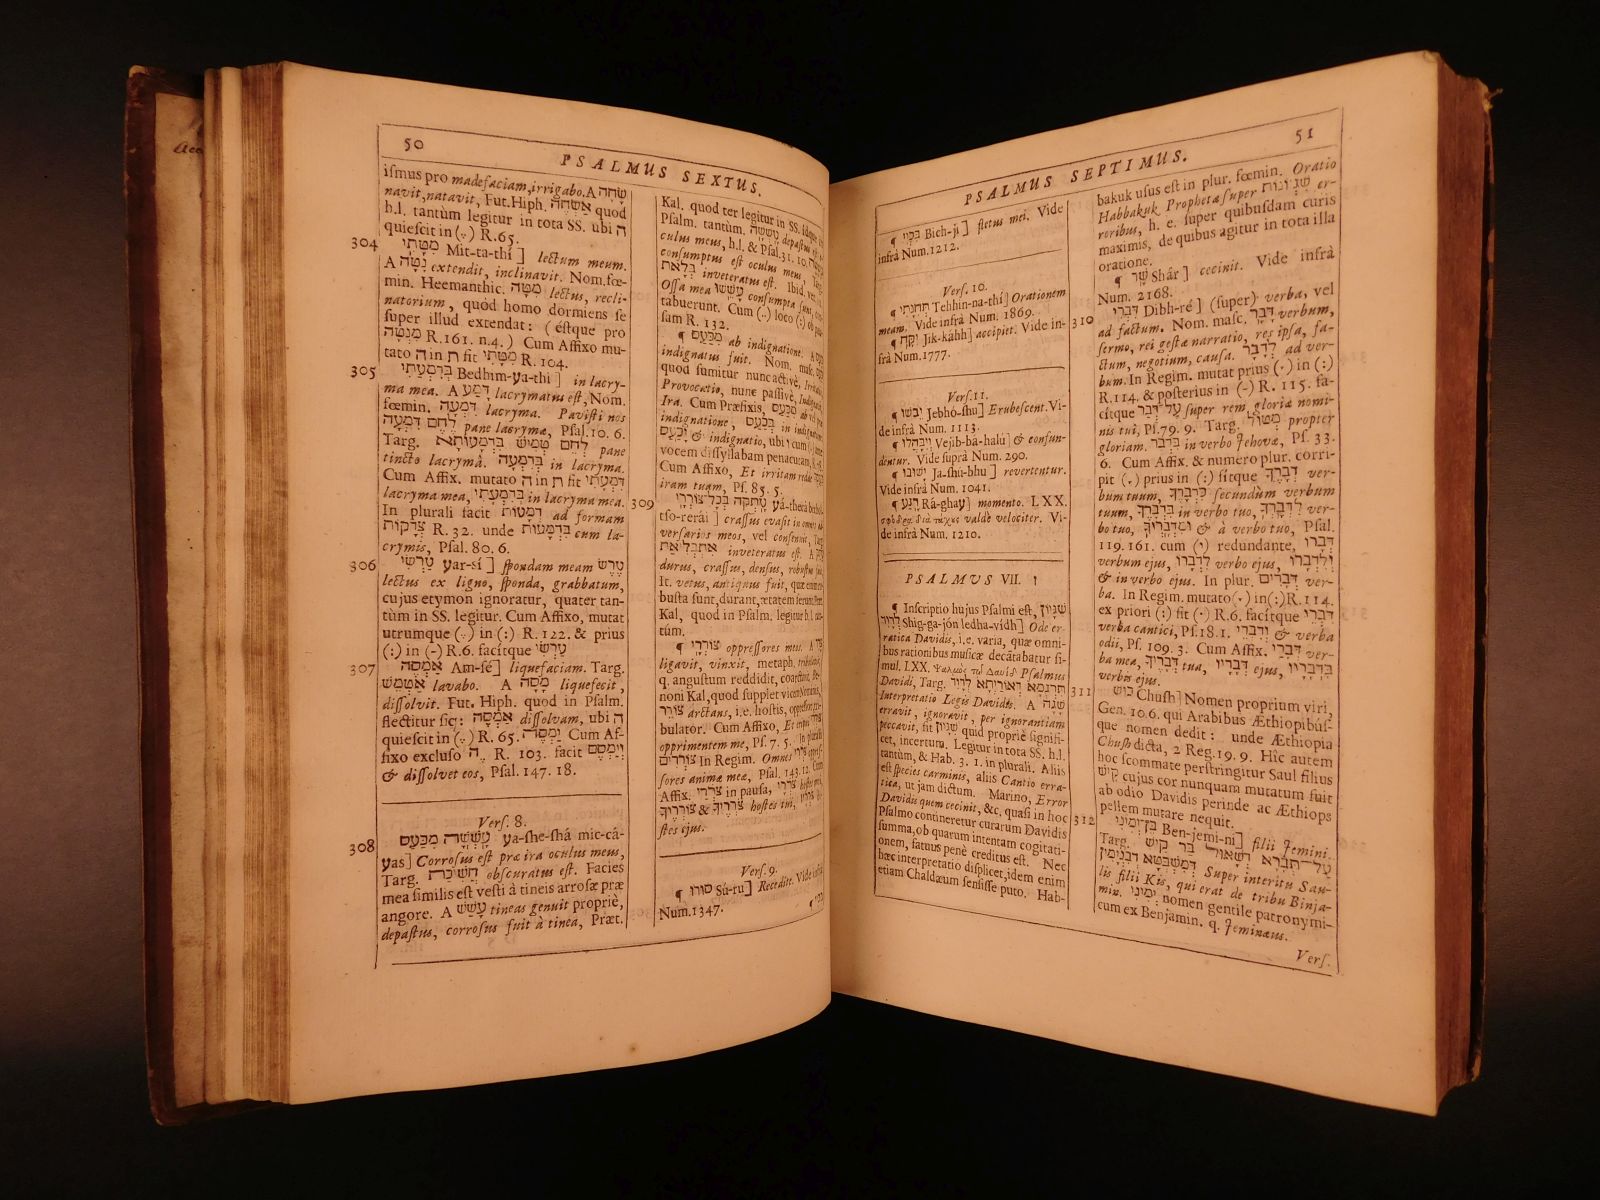 50
PSALMUS SEXTUS.
ismus pro madefaciam, irrigabo. A שָׂחָה
navit, natavit, Fut. Hiph. אַשְׂחֶה quod
h.l. tantùm legitur in tota SS. ubi ה
quiescit in (..) R. 65.
304 מִטָּתִי Mit-ta-thí ] lectum meum.
A נָטָה extendit, inclinavit. Nom. fœ-
min. Heemanthic. מִטָּה lectus, recli-
natorium, quód homo dormiens se
super illud extendat: ( éstque pro
מִנְטָה R. 161. n. 4. ) Cum Affixo mu-
tato ה in ת fit מִטָּתִי R. 104.
305 בְּדִמְעָתִי Bedhim-ya-thí ] in lacry-
ma mea. A דָּמַע lacrymatus est, Nom.
fœmin. דִּמְעָה lacryma. Pavisti nos
לֶחֶם דִּמְעָה pane lacrymæ, Psal. 10. 6.
Targ. לְחֵם טְמִישׁ בְּדִמְעָתָא pane
tincto lacrymâ. בְּדִמְעָה in lacryma.
Cum Affix. mutato ה in ת fit דִּמְעָתִי
lacryma mea, בְּדִמְעָתִי in lacryma mea.
In plurali facit דְּמָעוֹת ad formam
צְדָקוֹת R. 32. unde בִּדְמָעוֹת cum la-
crymis, Psal. 80. 6.
306 עַרְשִׂי yar-sí ] spondam meam עֶרֶשׂ
lectus ex ligno, sponda, grabbatum,
cujus etymon ignoratur, quater tan-
tùm in SS. legitur. Cum Affixo, mutat
utrumque (..) in (:) R. 122. & prius
(:) in (-) R. 6. facítque עַרְשִׂי
307 אַמְסֶה Am-sé ] liquefaciam. Targ.
אַטְמֵשׁ lavabo. A מָסָה liquefecit,
dissolvit. Fut. Hiph. quod in Psalm.
flectitur sic: אַמְסֶה dissolvam, ubi ה
quiescit in (..) R. 65. יַמְסֶה Cum Af-
fixo excluso ה R. 103. facit וְיַמְסֵם
& dissolvet eos, Psal. 147. 18.
Vers. 8.
308 עָשְׁשָׁה מִכַּעַס ya-she-shá mic-cá-
yas] Corrosus est præ ira oculus meus,
Targ. חֲשִׁיכַת obscuratus est. Facies
mea similis est vesti à tineis arrosæ præ
angore. A עָשַׁשׁ tineas genuit propriè,
depastus, corrosus fuit à tinea, Præt.
Kal. quod ter legitur in SS. idque in
Psalm. tantum. עָשְׁשָׁה depastus
culus meus, h.l. & Psal. 31. 10.
consumptus est oculus meus, Targ.
בְּלָאת inveteratus est. Ibid. ver.
Ossa mea עָשֵׁשׁוּ consumpta sunt,
tabuerunt. Cum (..) loco (:) ob pau-
sam R. 132.
¶ מִכַּעַס ab indignatione. A כָּעַס
indignatus fuit. Nom. masc.
quod sumitur nunc activè,
Provocatio, nunc passivè,
Ira. Cum Præfixis, מִכַּעַס ab
indignatione, בְּכַעַס in indignatione
וְכַעַס & indignatio, ubi
vocem dissyllabam penacutam, R.
Cum Affixo, Et irritam redde
iram tuam, Ps. 85. 5.
309 עָתְקָה בְּכָל־צוֹרְרָי yá-thecá
tso-rerái ] crassus evasit in omnes ad-
versarios meos, vel consenuit, Targ.
אִתְבַּלִיאַת inveteratus est. A
durus, crassus, densus, robustus fuit,
It. vetus, antiquus fuit, quæ enim
busta sunt, durant, ætatem ferunt. Præt.
Kal, quod in Psalm. legitur h.l. tan-
túm.
¶ צוֹרְרָי oppressores mei. A
ligavit, vinxit, metaph. tribulavit,
q. angustum reddidit, coarctavit. Be-
noni Kal, quod supplet vicem Nominis,
צוֹרֵר arctans, i.e. hostis, oppressor, tri-
bulator. Cum Affixo, Et eripui
opprimentem me, Ps. 7. 5. In plurali
צוֹרְרִים In Regim. Omnes צוֹרְרֵי oppres-
sores animæ meæ, Psal. 143. 12. Cum
Affix. צוֹרְרָי in pausa, צוֹרְרַי hostes mei,
צוֹרְרֶיךָ & hostes tui,
stes ejus.
Vers. 9.
¶ סוּרוּ Sú-ru ] Recedite. Vide infrà
Num. 1347.
¶ בִּכְיִי
51
PSALMUS SEPTIMUS.
¶ בִּכְיִי Bich-jí ] fletus mei. Vide
infrà Num. 1212.
Vers. 10.
¶ תְּחִנָּתִי Tehhin-na-thí ] Orationem
meam. Vide infrà Num. 1869.
¶ יִקָּח Jik-káhh] accipiet. Vide in-
frà Num. 1777.
Vers. 11.
¶ יֵבֹשׁוּ Jebhó-shu] Erubescent. Vi-
de infrà Num. 1113.
¶ וְיִבָּהֲלוּ Vejib-bá-halú ] & confun-
dentur. Vide suprà Num. 290.
¶ יָשֻׁבוּ Ja-shú-bhu ] revertentur.
Vide infrà Num. 1041.
¶ רָגַע Rá-ghay] momento. LXX.
σφόδρα διὰ τάχους valdè velociter. Vi-
de infrà Num. 1210.
PSALMVS VII. ז
¶ Inscriptio hujus Psalmi est, שִׁגָּיוֹן
לְדָוִד Shig-ga-jón ledha-vídh ] Ode er-
ratica Davidis, i.e. varia, quæ omni-
bus rationibus musicæ decãtabatur si-
mul. LXX. Ψαλμὸς τῷ Δαυὶδ Psalmus
Davidi, Targ. תַּרְגְּמָא דְאוֹרַיְתָא לְדָוִד
Interpretatio Legis Davidis. A שָׁגָה
erravit, ignoravit, per ignorantiam
peccavit, fit שִׁגָּיוֹן quid propriè signifi-
cet, incertum. Legitur in tota SS. h.l.
tantùm, & Hab. 3. 1. in plurali. Aliis
est species carminis, aliis Cantio erra-
tica, ut jam dictum. Marino, Error
Davidis quem cecinit, &c, quasi in hoc
Psalmo contineretur curarum Davidis
summa, ob quarum intentam cogitati-
onem, fatuus penè creditus est. Nec
hæc interpretatio displicet, idem enim
etiam Chaldæum sensisse puto. Hab-
bakuk usus est in plur. fœmin. Oratio
Habbakuk Prophetæ super שִׁגְיֹנוֹת er-
roribus, h. e. super quibusdam curis
maximis, de quibus agitur in tota illa
oratione.
¶ שָׁר Shár ] cecinit. Vide infrà
Num. 2168.
310 דִּבְרֵי Dibh-ré ] (super) verba, vel
ad factum. Nom. masc. דָּבָר verbum,
sermo, rei gestæ narratio, res ipsa, fa-
ctum, negotium, causa. לְדָבָר ad ver-
bum. In Regim. mutat prius (.) in (:)
R. 114. & posterius in (-) R. 115. fa-
cítque עַל דְּבַר super rem gloriæ nomi-
nis tui, Ps. 79. 9. Targ. מִטּוּל propter
gloriam. בִּדְבַר in verbo Jehovæ, Ps. 33.
6. Cum Affix. & numero plur. corri-
pit (.) prius in (:) sítque דְּבָרְךָ ver-
bum tuum, כִּדְבָרְךָ secundùm verbum
tuum, בִּדְבָרֶךָ in verbo tuo, לִדְבָרְךָ ver-
bo tuo, וּמִדְּבָרֶיךָ & à verbo tuo, Psal.
119. 161. cum (ו) redundante, דְּבָרוֹ
verbum ejus, לִדְבָרוֹ verbo ejus. וְלִדְבָרוֹ
& in verbo ejus. In plur. דְּבָרִים ver-
ba. In Regim. mutato (.) in (:) R. 114.
ex priori (:) fit (.) R. 6. facítque דִּבְרֵי
verba cantici, Ps. 18. 1. וְדִבְרֵי & verba
odii, Ps. 109. 3. Cum Affix. דְּבָרַי ver-
ba mea, דְּבָרֶיךָ tua, דְּבָרָיו ejus, בִּדְבָרָיו
verbis ejus.
311 כּוּשׁ Chush] Nomen proprium viri,
Gen. 10 6. qui Arabibus Æthiopibús-
que nomen dedit: unde Æthiopia
Chush dicta, 2 Reg. 19. 9. Hîc autem
hoc scommate perstringitur Saul filius
קִישׁ cujus cor nunquam mutatum fuit
ab odio Davidis perinde ac Æthiops
pellem mutare nequit.
312 בֶּן־יְמִינִי Ben-jemi-ni] filii Jemini.
Targ. עַל־תְּבָרָא דְשָׁאוּל בַּר קִישׁ
דְמִשִּׁבְטָא דְבִנְיָמִין Super interitu Sau-
lis filii Kis, qui erat de tribu Binja-
min. יְמִינִי nomen gentile patronymi-
cum ex Benjamin. q. Jeminæus.
Vers.